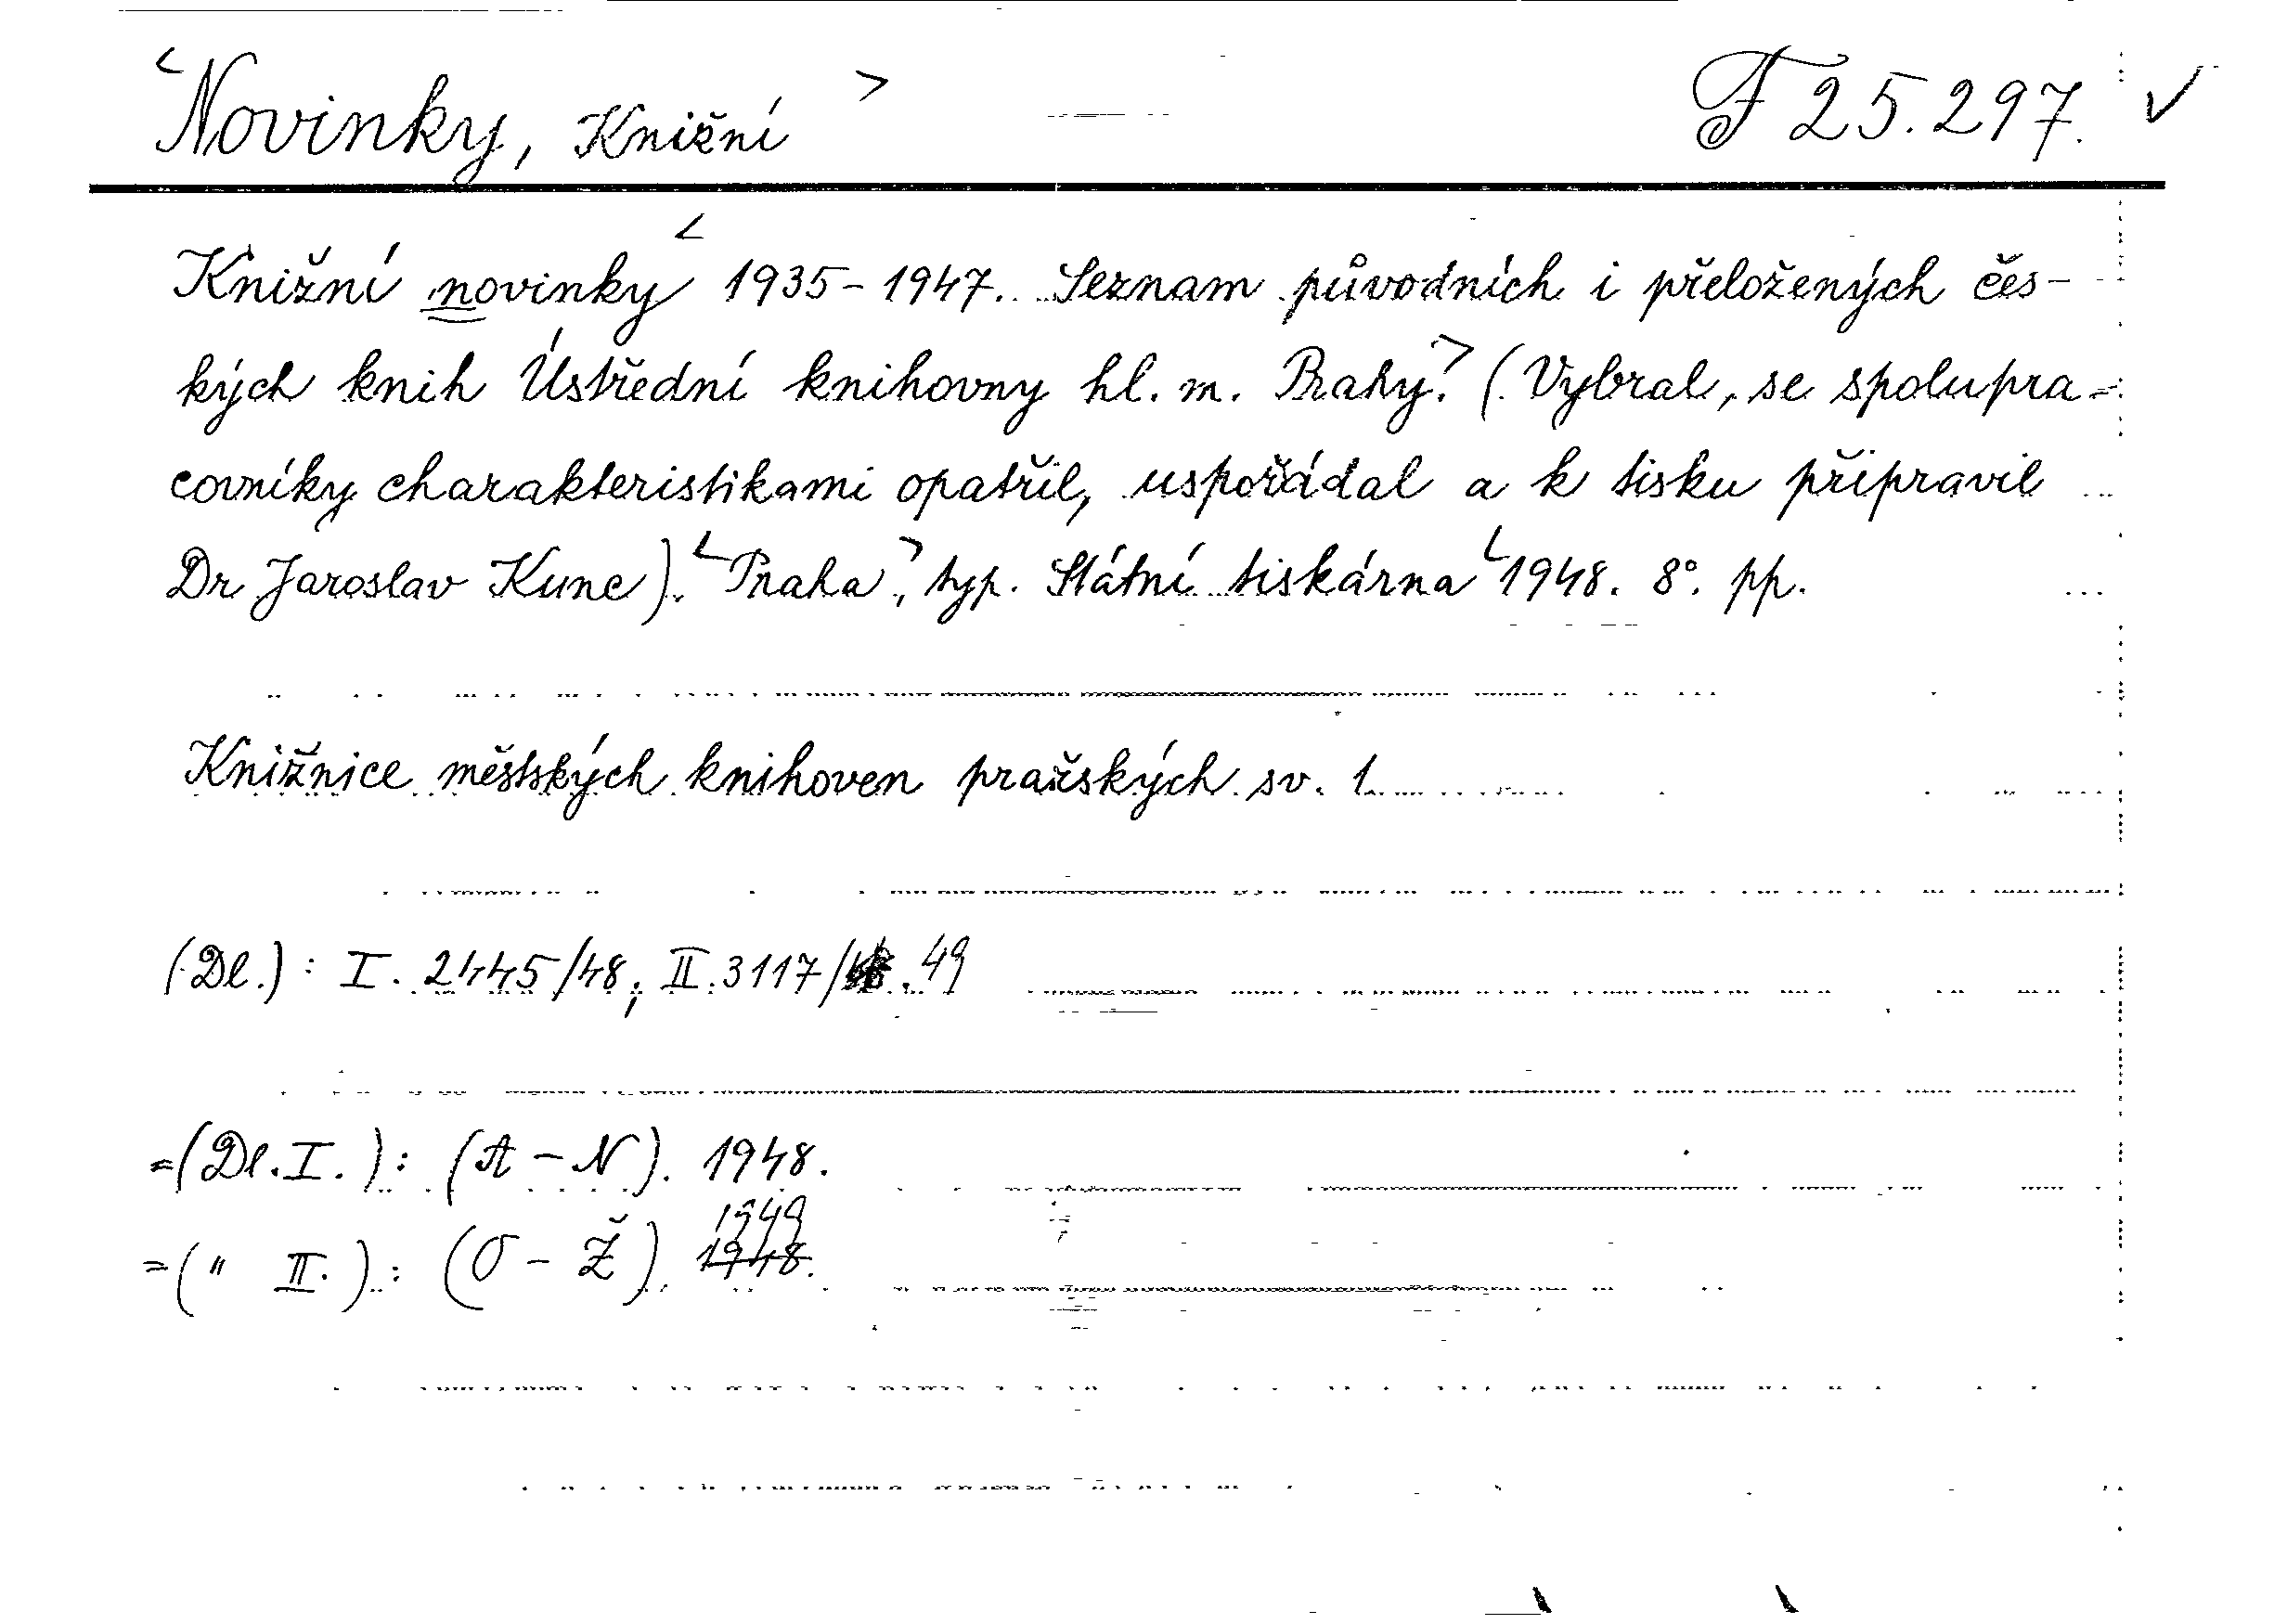 <Novinky, Knižní> F 25.297. ✓
Knižní novinky < 1935-1947. Seznam původních i přeložených čes-
kých knih Ústřední knihovny hl. m. Prahy>. (Vybral, se spolupra-
covníky charakteristikami opatřil, uspořádal a k tisku připravil
Dr Jaroslav Kunc). <Praha>, typ. Státní tiskárna <1948. 8°. pp.
Knižnice městských knihoven pražských sv. 1
(Dl.): I. 2445/48, II. 3117/48. 49
=(Dl. I.): (A-N). 1948.
1949
=(" II.): (O-Ž). 1948.